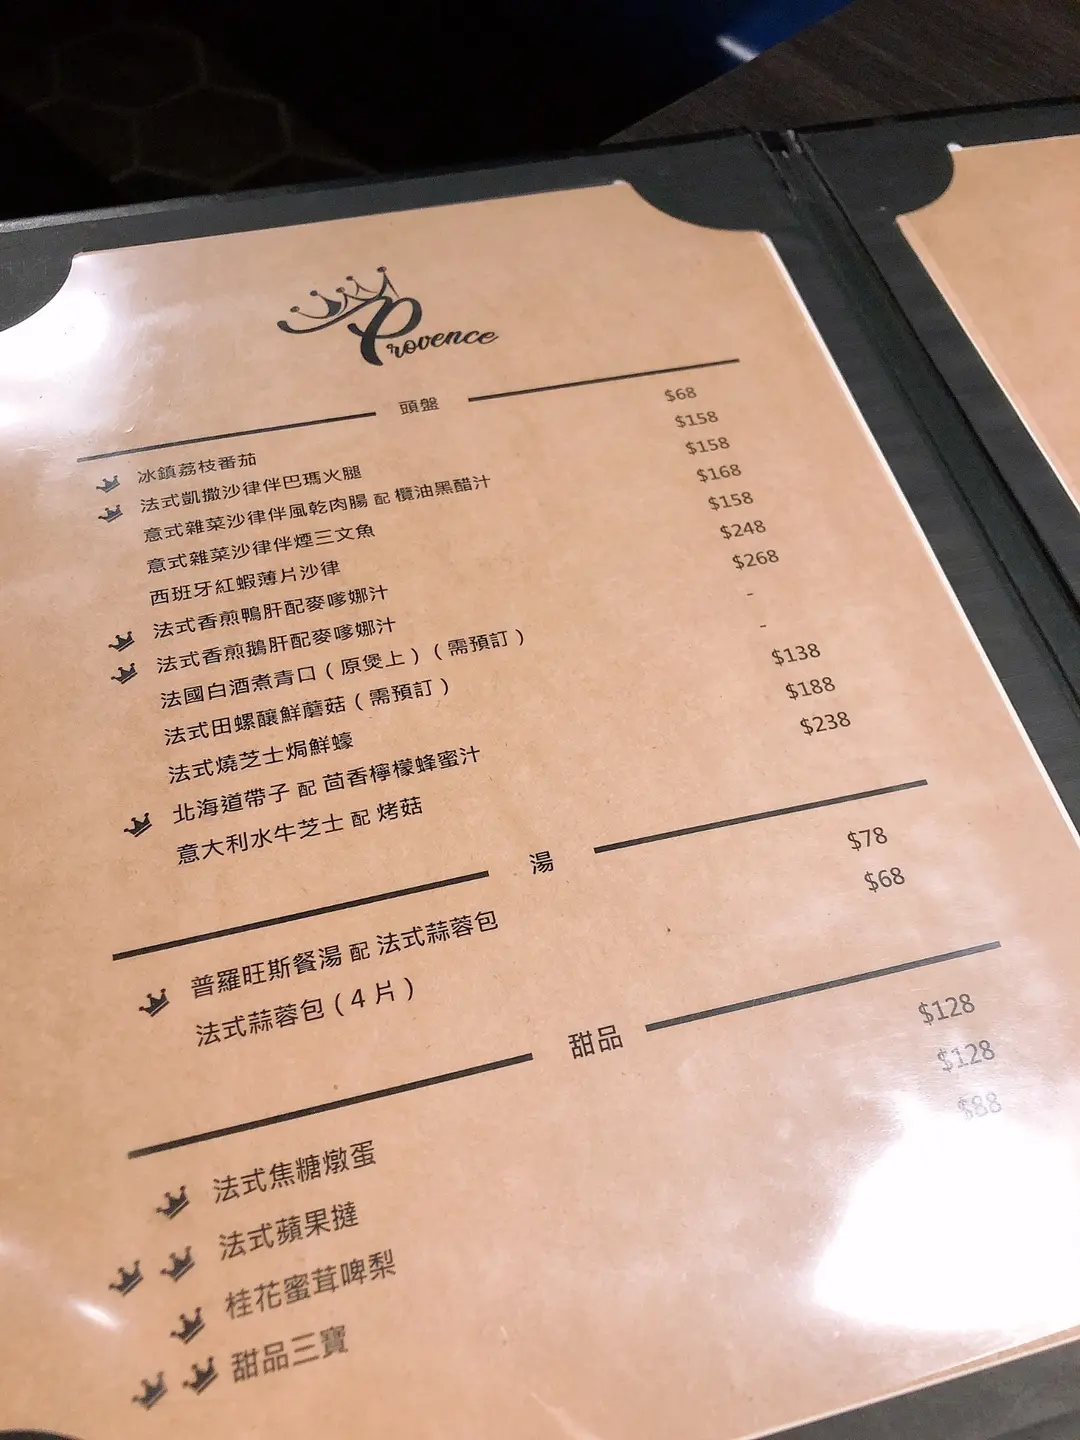 Provence
頭盤
冰鎮荔枝番茄 $68
法式凱撒沙律伴巴瑪火腿 $158
意式雜菜沙律伴風乾肉腸 配 欖油黑醋汁 $158
意式雜菜沙律伴煙三文魚 $168
西班牙紅蝦薄片沙律 $158
法式香煎鴨肝配麥嗲娜汁 $248
法式香煎鵝肝配麥嗲娜汁 $268
法國白酒煮青口(原煲上)(需預訂) -
法式田螺釀鮮蘑菇(需預訂) -
法式燒芝士焗鮮蠔 $138
北海道帶子 配 茴香檸檬蜂蜜汁 $188
意大利水牛芝士 配 烤菇 $238
湯
普羅旺斯餐湯 配 法式蒜蓉包 $78
法式蒜蓉包(4 片) $68
甜品
法式焦糖燉蛋 $128
法式蘋果撻 $128
桂花蜜茸啤梨 $88
甜品三寶